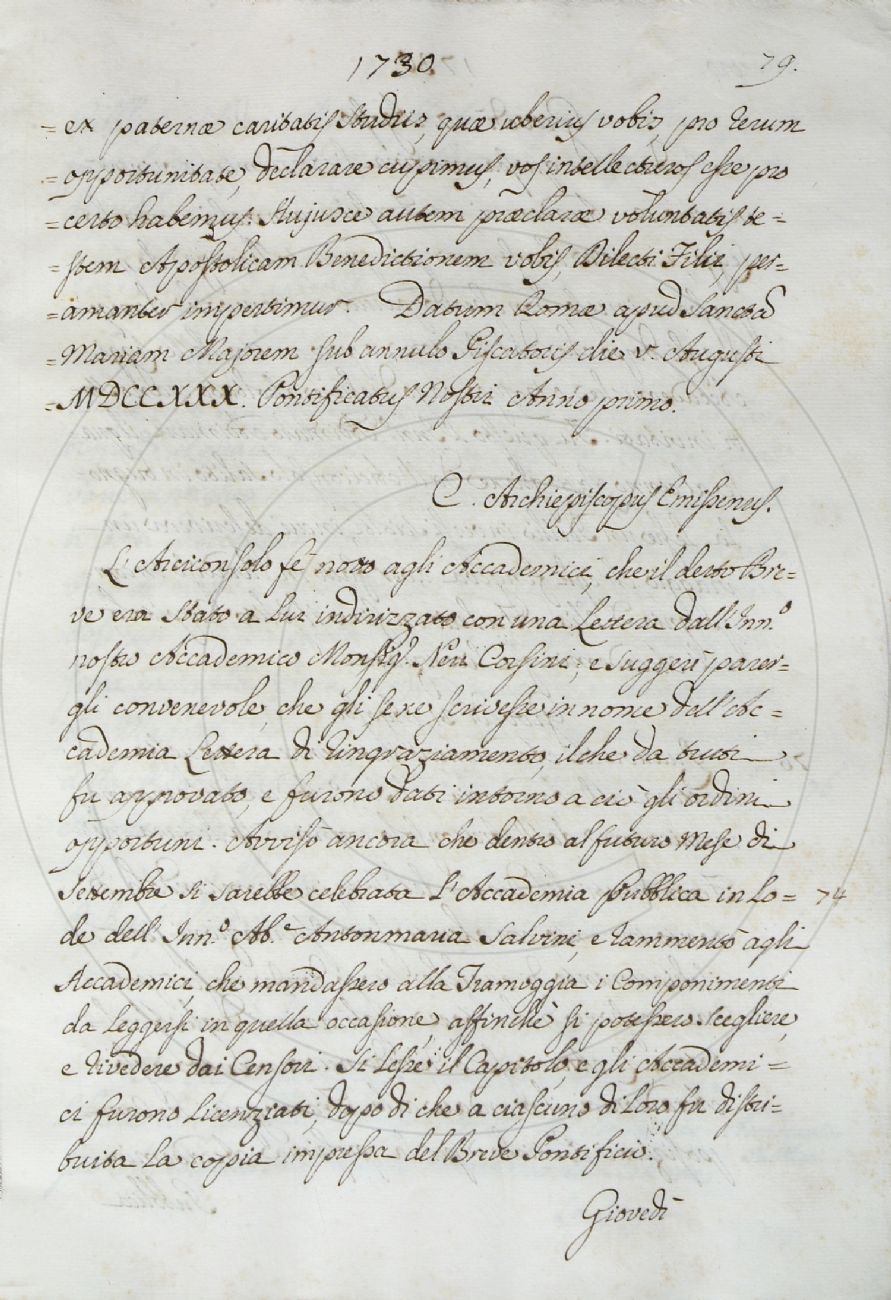 1730. 79.
= ex paternæ caritatis studiis, quæ uberius vobis, pro rerum
= opportunitate, declarare cupimus, vos intellecturos esse pro
= certo habemus. Hujusce autem præclaræ voluntatis te=
= stem Apostolicam Benedictionem vobis, Dilecti Filii, per=
= amanter impertimur. Datum Romæ apud Sanctã
= Mariam Majorem sub annulo Piscatoris die v. Augusti
= MDCCXXX. Pontificatus Nostri Anno primo.
C. Archiepiscopus Emissenus.
L'Arciconsolo fè noto agli Accademici, che il detto Bre=
ve era stato a lui indirizzato con una Lettera dall'Inn.º
nostro Accademico Monsig.r Neri Corsini, e suggerì parer=
gli convenevole, che gli se ne scrivesse in nome dell'Ac=
cademia Lettera di ringraziamento, il che da tutti
fu approvato, e furono dati intorno a ciò gli ordini
opportuni. Avvisò ancora che dentro al futuro Mese di
Settembre si sarebbe celebrata l'Accademia pubblica in lo= 74
de dell'Inn.º Ab.e Antonmaria Salvini, e rammentò agli
Accademici, che mandassero alla Tramoggia i Componimenti
da leggersi in quella occasione, affinchè si potessero scegliere,
e rivedere dai Censori. Si lesse il Capitolo, e gli Accademi=
ci furono licenziati, dopo di che a ciascuno di loro fu distri=
buita la copia impressa del Breve Pontificio.
Giovedì